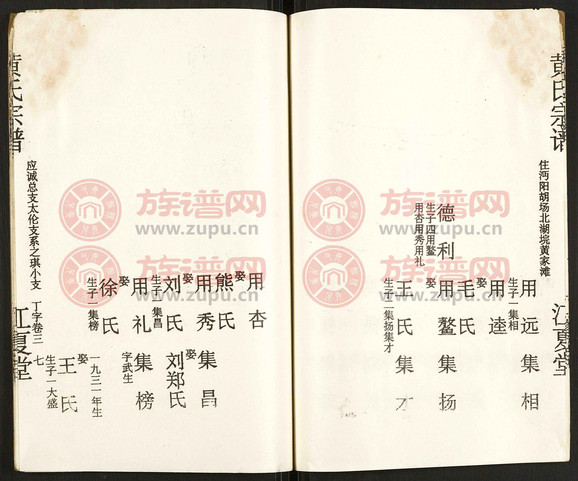 黄氏宗谱
江夏堂
住沔阳胡场北湖垸黄家滩
用远集相
生子一集相
用逵
毛氏
娶
用鳌集扬
娶
王氏集才
生子二集扬集才
德利
生子四用鳌
用杏用秀用礼
用杏
娶
熊氏
用秀集昌
娶
刘氏
娶
刘郑氏
生子一集昌
用礼集榜
字武生
娶
徐氏
一九三一年生
生子一集榜
娶
王氏
生子一大盛
黄氏宗谱
应诚总支太伦支系之琪小支
丁字卷三
七
江夏堂
族谱网
www.zupu.cn
族谱网
www.zupu.cn
族谱网
www.zupu.cn
族谱网
www.zupu.cn